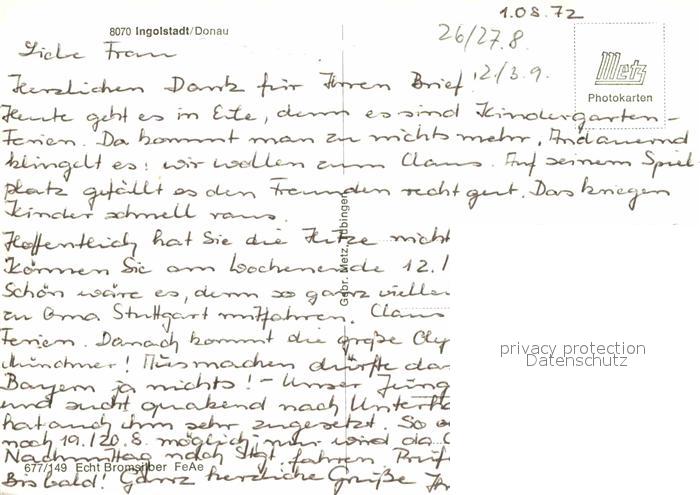 1.08.72
8070 Ingolstadt/Donau
26/27.8.
12/3.9.
Liebe Frau
Metz
Photokarten
Herzlichen Dank für Ihren Brief.
Heute geht es in Eile, denn es sind Kindergarten-
Ferien. Da kommt man zu nichts mehr. Andauernd
klingelt es: wir wollen zum Claus. Auf seinem Spiel-
platz gefällt es den Freunden recht gut. Das kriegen
Kinder schnell raus.
Hoffentlich hat Sie die Hitze nicht
Können Sie am Wochenende 12./
Schön wäre es, denn so ganz
zu Oma Stuttgart mitfahren. Claus
Ferien. Danach kommt die große
Münchner! Ausmachen dürfte
Bayern ja nichts! - Unser
und sucht quakend nach
hat auch ihm sehr zugesetzt. So
noch 19./20.8. möglich, nur wird da
Nachmittag nach Stgt. fahren
Bis bald! Ganz herzliche Grüße
Gebr. Metz, Tübingen
677/149 Echt Bromsilber FeAe
privacy protection
Datenschutz